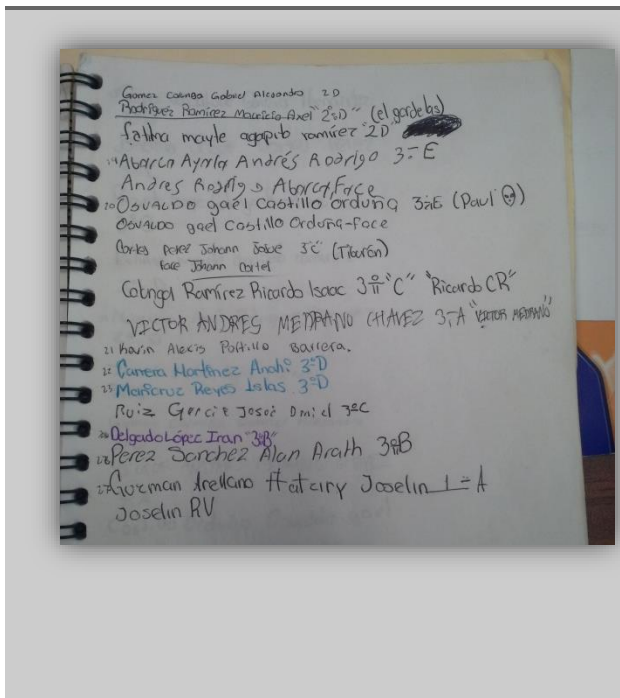 Gomez Colinga Gabriel Alejandro 2D
Rodriguez Ramirez Mauricio Axel "2ºD" (el gordelas)
fatima mayte agapito ramirez "2D"
19 Abarca Ayala Andrés Rodrigo 3º E
Andres Rodrigo Abarca, Face
20 OSVALDO gaél Castillo orduña 3ºE (Paul)
OSVALDO gael Castillo Orduña-Face
Cortes Perez Johann Josue 3ºC (Tiburón)
face Johann Cortes
Colinga Ramírez Ricardo Isaac 3º "C" "Ricardo CR"
VICTOR ANDRES MEDRANO CHAVEZ 3º A "VICTOR MEDRANO"
21 Kevin Alexis Portillo Barrera.
22 Carrera Martínez Anahi 3ºD
23 Maricruz Reyes Islas 3ºD
Ruiz Garcia Josué Daniel 3ºC
Delgado López Iran "3ºB"
Perez Sanchez Alan Arath 3ºB
27 Guzman Arellano Joselin 1º A
Joselin RV